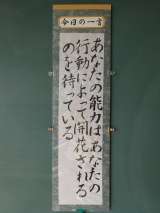 今日の一言
あなたの能力はあなたの
行動によって開花される
のを待っている